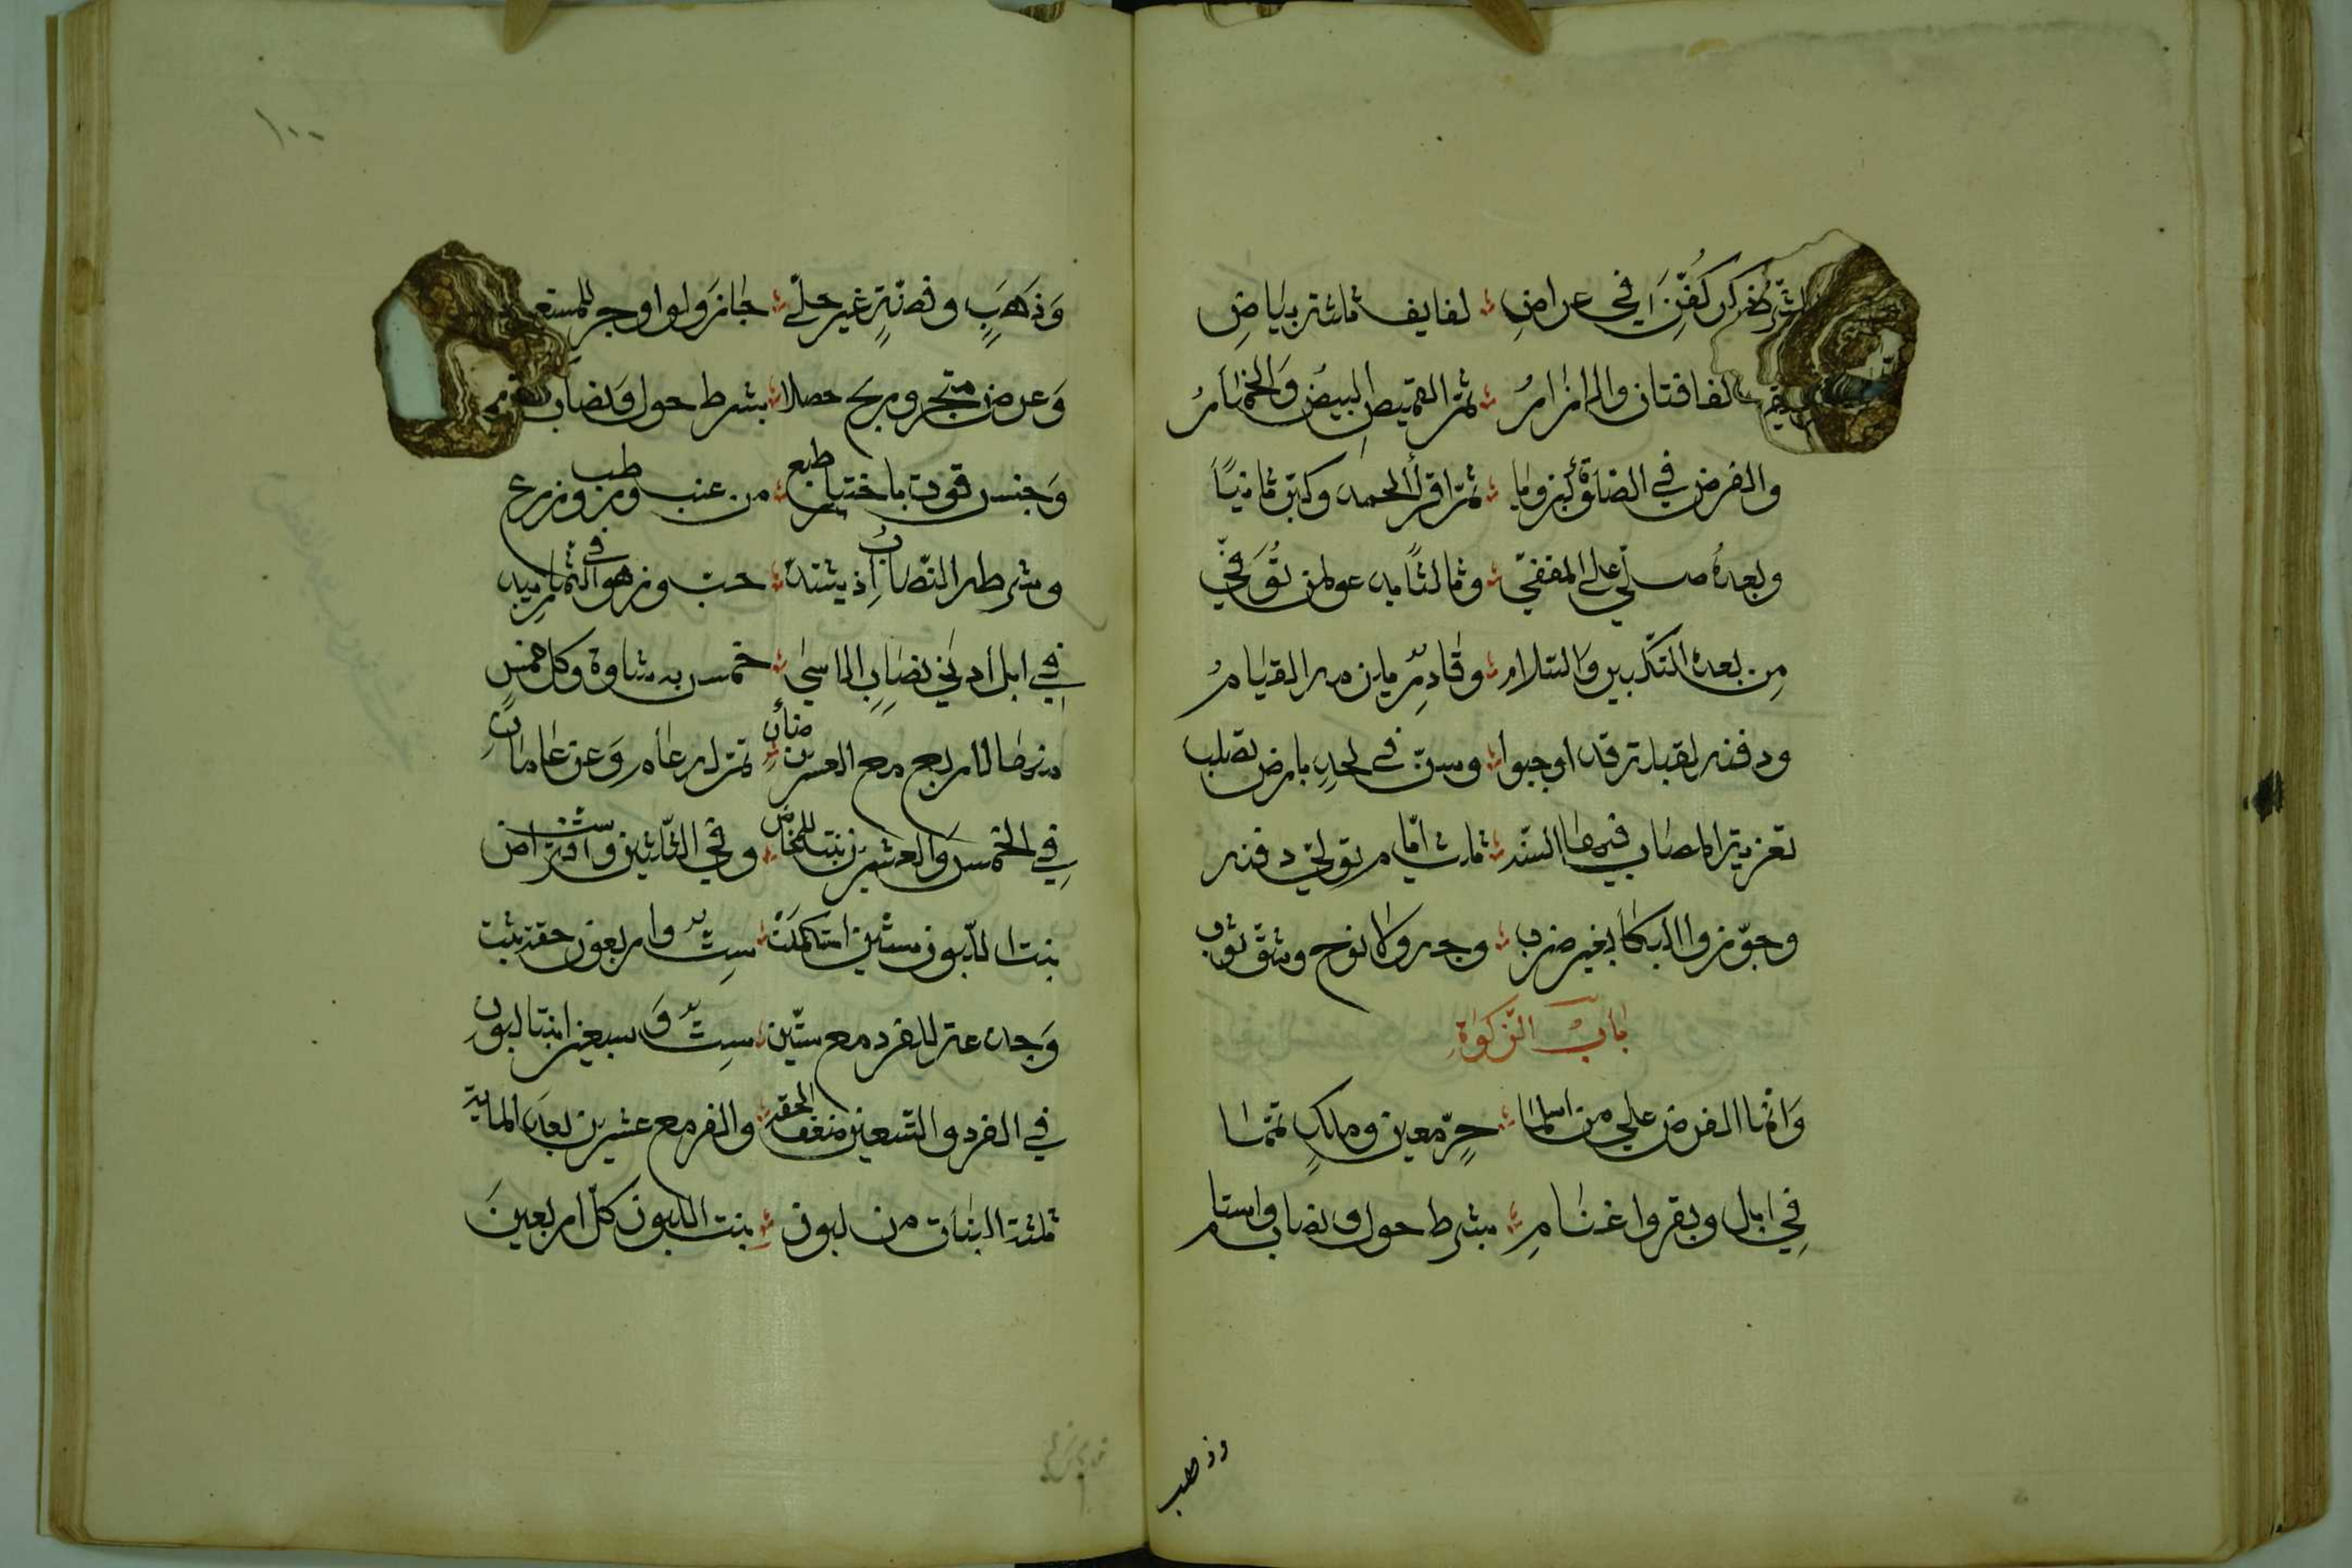 ذكر كُفِّنَ في عراضِ ؞ لفايف ثلثة بياضِ
لفافتان والازارُ ؞ ثم القميص البيض والخمارُ
والفرض في الصلوة كبر ناويا ؞ ثم اقرأ الحمد وكبّر ثانيًا
وبعدهُ صلّي على المقفّي ؞ وثالثًا يدعو لمن تُوُفّي
مِن بعده التكبير والسلام ؞ وقادرٌ يلزمه القيامُ
ودفنه لقبلة قد اوجبوا ؞ وسنّ في لحدٍ بارض تصلب
تعزية المصاب فيها السنّه ؞ ثلث ايّام توالي دفنه
وجوّزوا البكا بغير ضربِ ؞ وجه ولا نوح وشقّ ثوبِ
بابُ الزكوٰةِ
وَانّما الفرض علي من اسلما ؞ حرٍّ معين وملكٍ تمّما
فِي ابل وبقر واغنامِ ؞ بشرط حول ونصاب واستام
وذهب
١٠٠
وَذهَبٍ وفضّةٍ غير حلي ؞ جاز ولو اوجر للمستعمل
وَعرض متجر وربح حصلا ؞ بشرط حول ونصاب
وَجنس قوت باختيار طبع ؞ من عنب ورطب وزرع
وشرطه النّصاب اذ يشتدّ ؞ حبّ وزهو في الثمار يبدو
في ابل ادني نصابِ الاسي ؞ خمس به شاوة وكل خمسِ
منها لاربع مع العشرين ضأنِ ؞ تمّ له عام وعنز عامانِ
فِي الخمس وَالعشرين بنت للمخاض ؞ وفي الثلثين وستّ افتراض
بنت اللّبون سنتين استكملت ؞ سِتٌّ واربعون حقة ثبت
وَجذعة للفرد مع ستّين ؞ سِتٌّ وَسبعين ابنتا لبونِ
في الفرد والتسعين ضعف الحقة ؞ والفرد مع عشرين بعد الماية
ثلثة البنات من لبون ؞ بنت اللبون كلّ اربعينَ